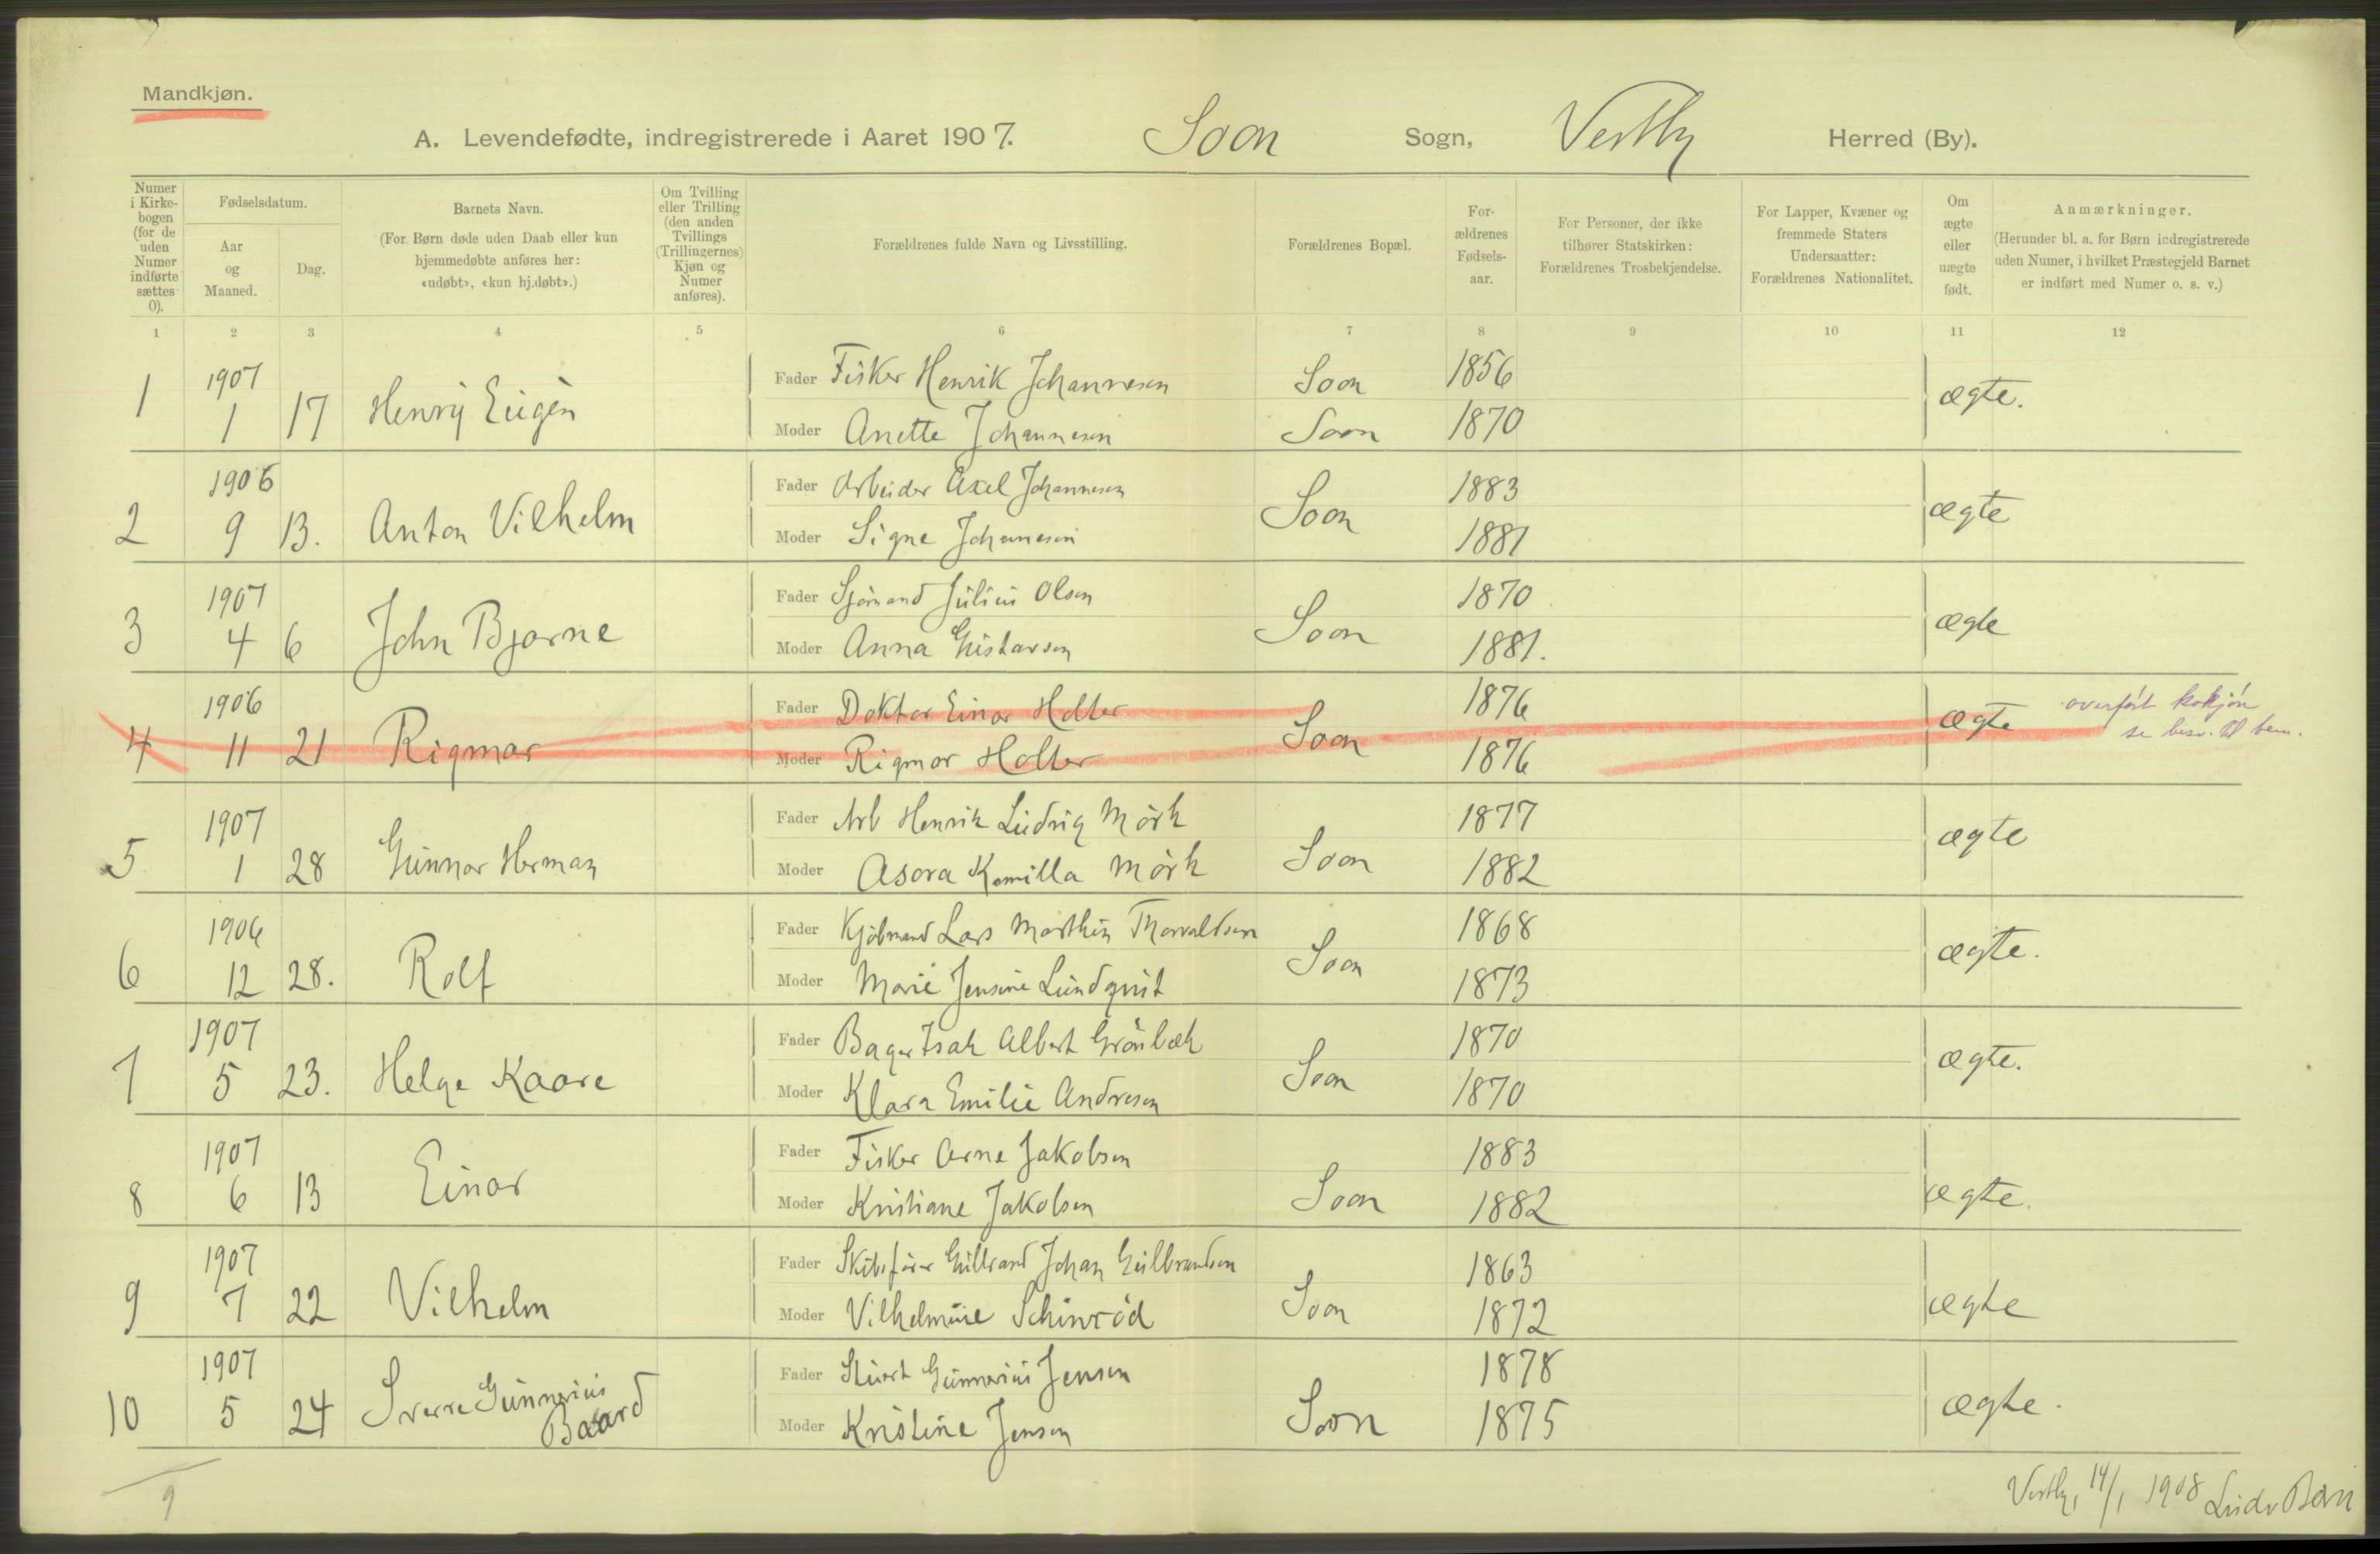 Mandkjøn.
A. Levendefødte, indregistrerede i Aaret 1907. Soon Sogn, Vestby Herred (By).
Numer i Kirkebogen (for de uden Numer indførte sættes 0).
Fødselsdatum.
Aar og Maaned.
Dag.
Barnets Navn.
(For Børn døde uden Daab eller kun hjemmedøbte anføres her: «udøbt», «kun hj.døbt».)
Om Tvilling eller Trilling (den anden Tvillings (Trillingernes) Kjøn og Numer anføres).
Forældrenes fulde Navn og Livsstilling.
Forældrenes Bopæl.
For-ældrenes Fødsels-aar.
For Personer, der ikke tilhører Statskirken: Forældrenes Trosbekjendelse.
For Lapper, Kvæner og fremmede Staters Undersaatter: Forældrenes Nationalitet.
Om ægte eller uægte født.
Anmærkninger.
(Herunder bl. a. for Børn indregistrerede uden Numer, i hvilket Præstegjeld Barnet er indført med Numer o. s. v.)
1 2 3 4 5 6 7 8 9 10 11 12
1 1907 1 17 Henry Eugèn Fader Fisker Henrik Johannesen Soon 1856 ægte.
Moder Anette Johannesen Soon 1870
2 1906 9 13. Anton Vilhelm Fader Arbeider Axel Johannesen Soon 1883 ægte
Moder Signe Johannesen 1881
3 1907 4 6 John Bjarne Fader Sjømand Julius Olsen Soon 1870 ægte
Moder Anna Gustavsen 1881.
4 1906 11 21 Rigmor Fader Doktor Einar Holter Soon 1876 ægte overført kvkjøn
Moder Rigmor Holter 1876 se besv. til bem.
5 1907 1 28 Gunnar Herman Fader Arb Henrik Ludvig Mørk Soon 1877 ægte
Moder Asora Kamilla Mørk 1882
6 1906 12 28. Rolf Fader Kjøbmand Lars Marthin Thorvaldsen Soon 1868 ægte.
Moder Marie Jensine Lundqvist 1873
7 1907 5 23. Helge Kaare Fader Bager Isak Albert Grønbæk Soon 1870 ægte.
Moder Klara Emilie Andresen 1870
8 1907 6 13 Einar Fader Fisker Arne Jakobsen Soon 1883 ægte.
Moder Kristiane Jakobsen 1882
9 1907 7 22 Vilhelm Fader Skibsfører Gulbrand Johan Gulbrandsen Soon 1863 ægte
Moder Vilhelmine Schinrød 1872
10 1907 5 24 Sverre Gunnerius Baard Fader Stuert Gunnerius Jensen Soon 1878 ægte.
Moder Kristine Jensen 1875
9
Vestby, 14/1 1908